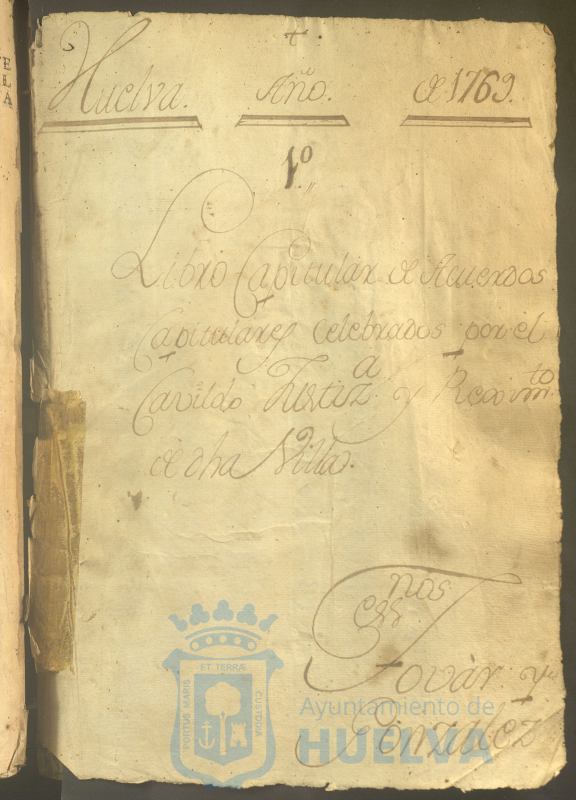 +
Huelva. Año. de 1769.
1º
Libro Capitular de Acuerdos
Capitulares celebrados por el
Cavildo Justizª y Rexim.to
de dha Villa.
Ess.nos
Tovàr y
Gonzalez
ET TERRÆ
PORTUS MARIS
CUSTODIA
Ayuntamiento de
HUELVA
E
L
A